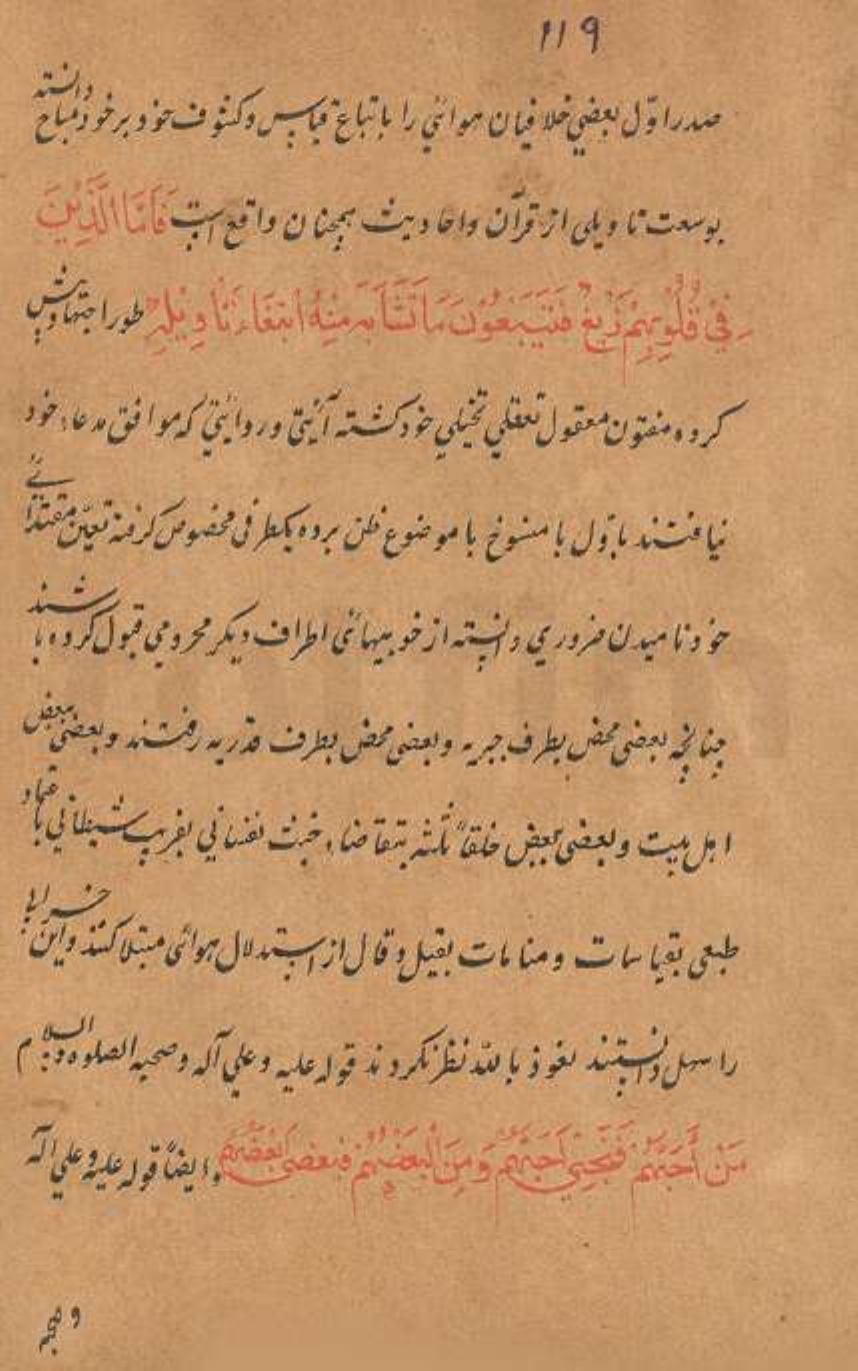 ۱۱۹
صدر اول بعضی خلافیان هوائی را باتباع قیاس و کشوف خود بر خود مباح دانسته
بوسعت تاویلی از قرآن و احادیث همچنان واقع است فَاَمَّا الَّذِیْنَ
فِیْ قُلُوْبِهِمْ زَیْغٌ فَیَتَّبِعُوْنَ مَا تَشَابَهَ مِنْهُ ابْتِغَاءَ تَاْوِیْلِهٖ طور اجتهاد پیش
کرده مفتون معقول تعقلی تخیلی خود کشته آیتی و روایتی که موافق مدعاء خود
نیافتند باول با منسوخ با موضوع ظن برده یکطرفی مخصوص کرفته تعین مقتدائے
خود نامیدن ضروری دانسته از خوبیهائی اطراف دیکر محرومی قبول کرده باشند
چنانچه بعضی محض بطرف جبریه و بعضی محض بطرف قدریه رفتند و بعضی ببغض
اهل بیت و بعضی ببغض خلفاً ثلثه بتقاضاء خبث نفسانی بفریب شیطانی باعتماد
طبعی بقیاسات و منامات بقیل و قال از استدلال هوائی مبتلا کشتند و این خرابیها
را سهل دانستند نعوذ بالله نظر نکردند قوله علیه و علی آله و صحبه الصلوه والسلام
مَنْ اَحَبَّهُمْ فَبِحُبِّیْ اَحَبَّهُمْ وَمَنْ اَبْغَضَهُمْ فَبِبُغْضِیْ اَبْغَضَهُمْ و ایضاً قوله علیه و علی آله
و صحبه